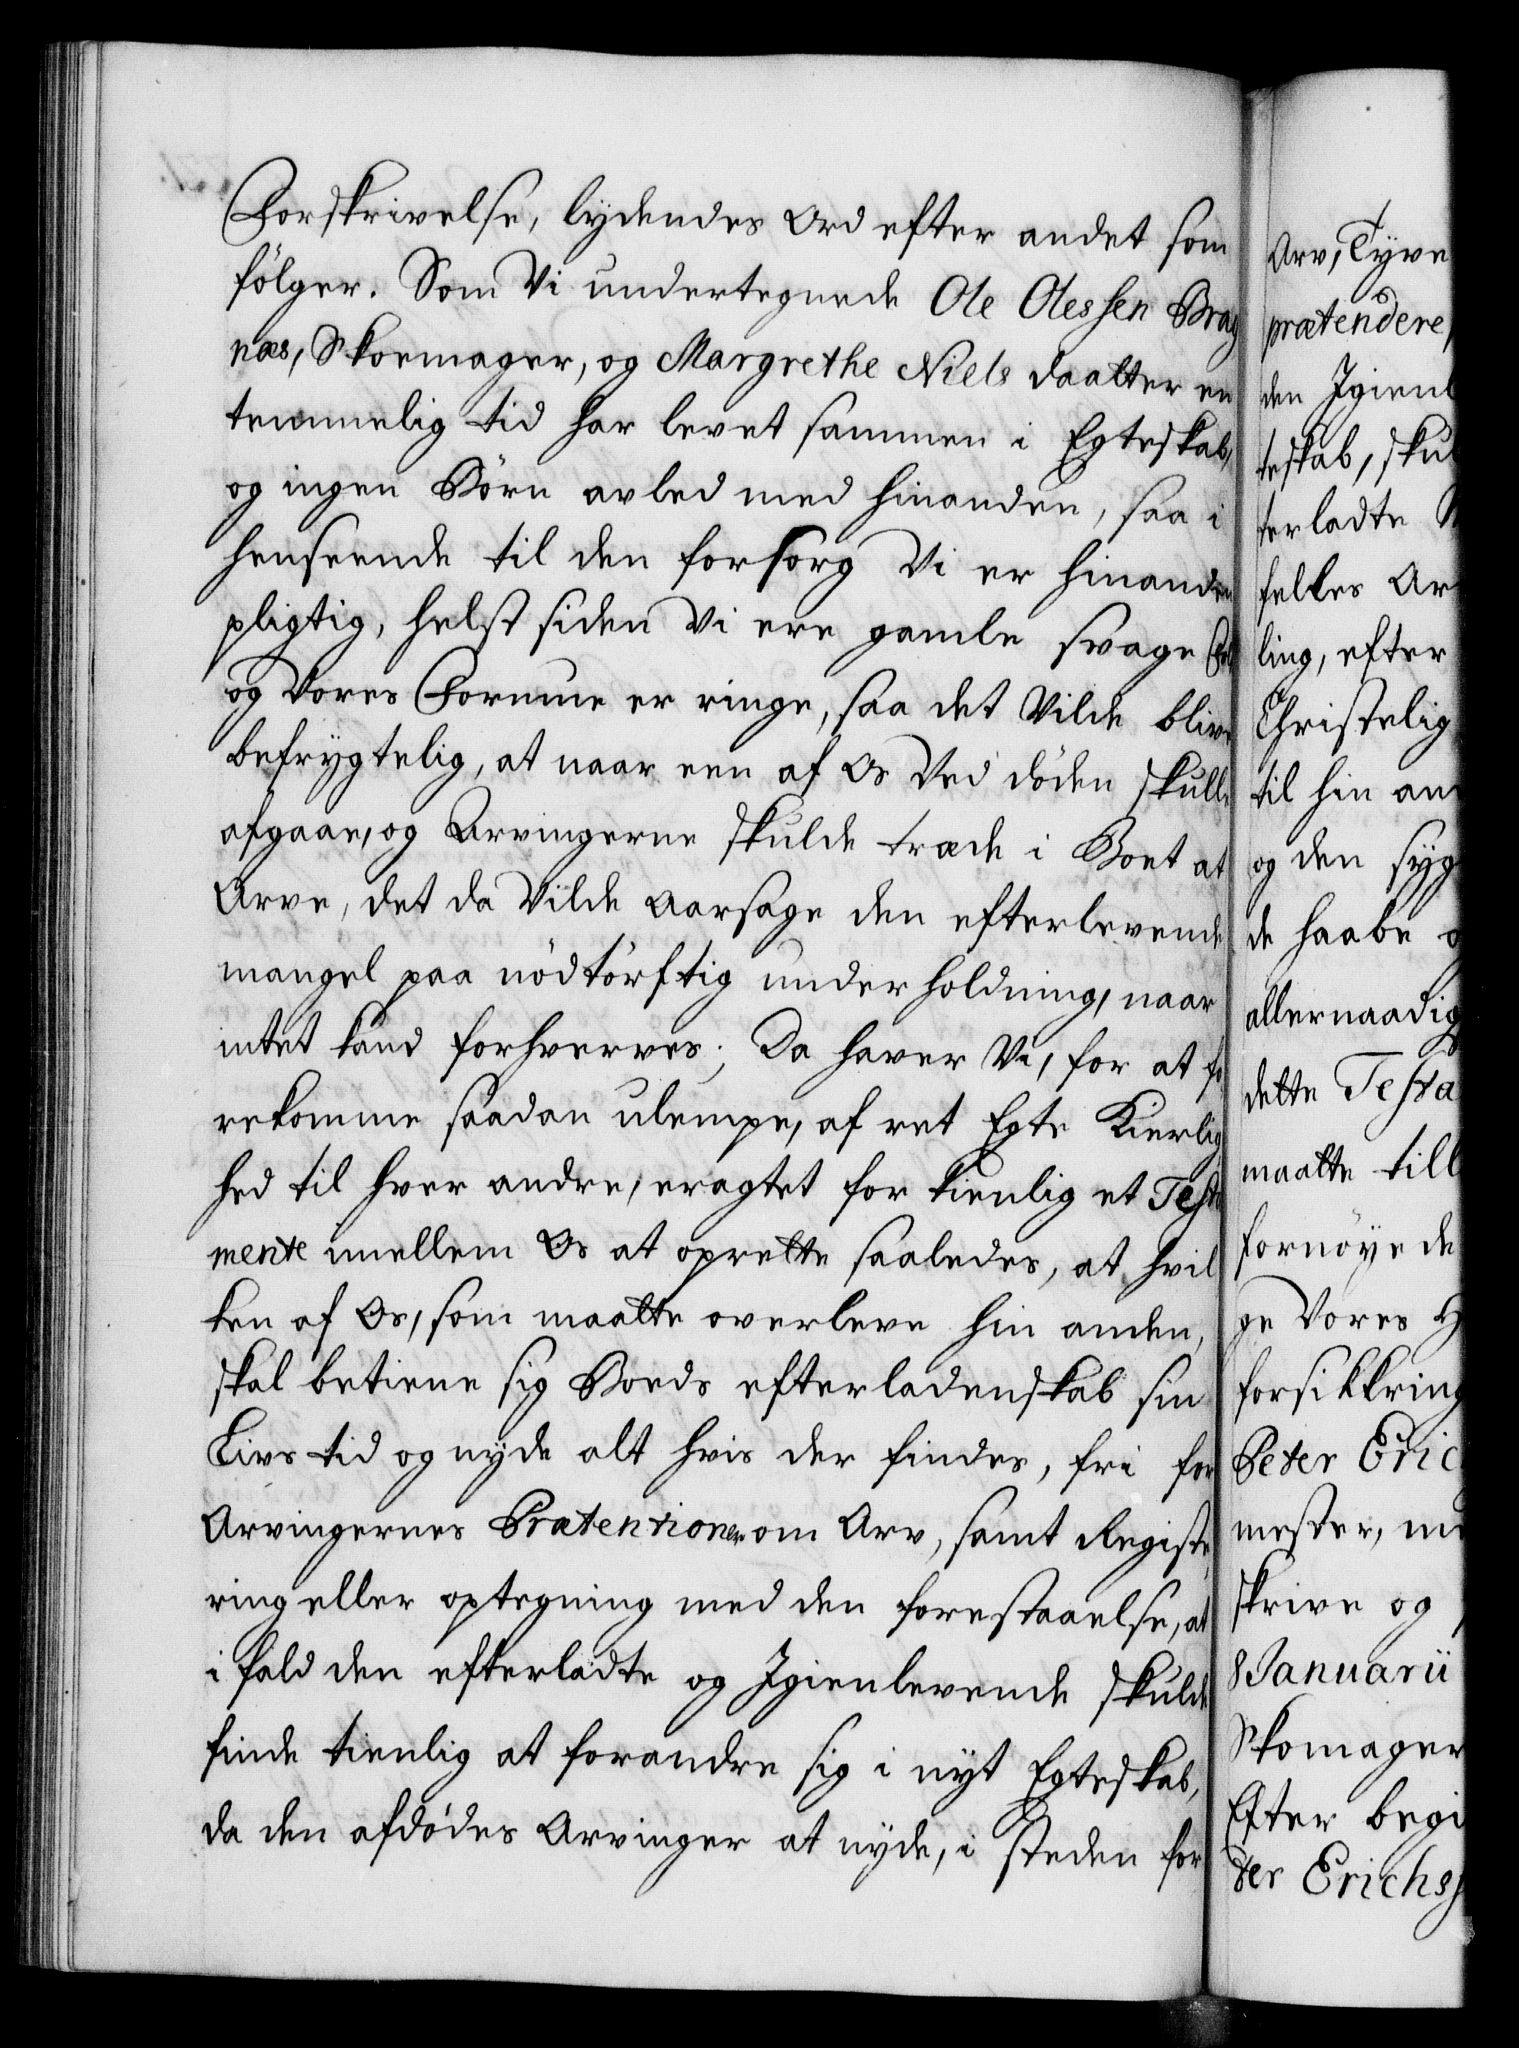 Forskrivelse, lydendes Ord efter andet som
fölger. Som Vi undertegnede Ole Olessen Brag
næs, Skoemager, og Margrethe Niels daatter en
temmelig tid har levet sammen i Egteskab,
og ingen Börn avled med hinanden, saa i
henseende til den forsorg Vi er hinanden
pligtig, helst siden Vi ere gamle svage Fol
og Vores Formue er ringe, saa det Vilde blive
befrygtelig, at naar een af Os Ved döden skulle
afgaae, og Arvingerne skulde træde i Boet at
Arve, det da Vilde Aarsage den efterlevende
mangel paa nödtörftig underholdning, naar
intet kand forhverves; Da haver Vi, for at fo
rekomme saadan ulempe, af ret Egte Kierlig
hed til hver andre, eragtet for tienlig et Testa
mente imellem Os at oprette saaledes, at hvil
ken af Os, som maatte overleve hin anden,
skal betiene sig Boeds efterladenskab sin
Livs tid og nyde alt hvis der findes, fri for
Arvingernes Prætentioner om Arv, samt Registe
ring eller optegning med den forestaaelse, at
i fald den efterladte og Igienlevende skulde
finde tienlig at forandre sig i nyt Egteskab,
da den afdödes Arvinger at nyde, i steden for
Arv, Tyve
prætendere,
den Igienl
teskab, skul
terladte
felles Ar
ling, efter
Christelig
til hin an
og den syg
de haabe o
allernaadig
dette Testa
maatte till
fornöye de
ge Vores H
forsikkring
Peter Eric
mester, me
skrive og
8 Januarii
Skomager
Efter begi
ter Erichs